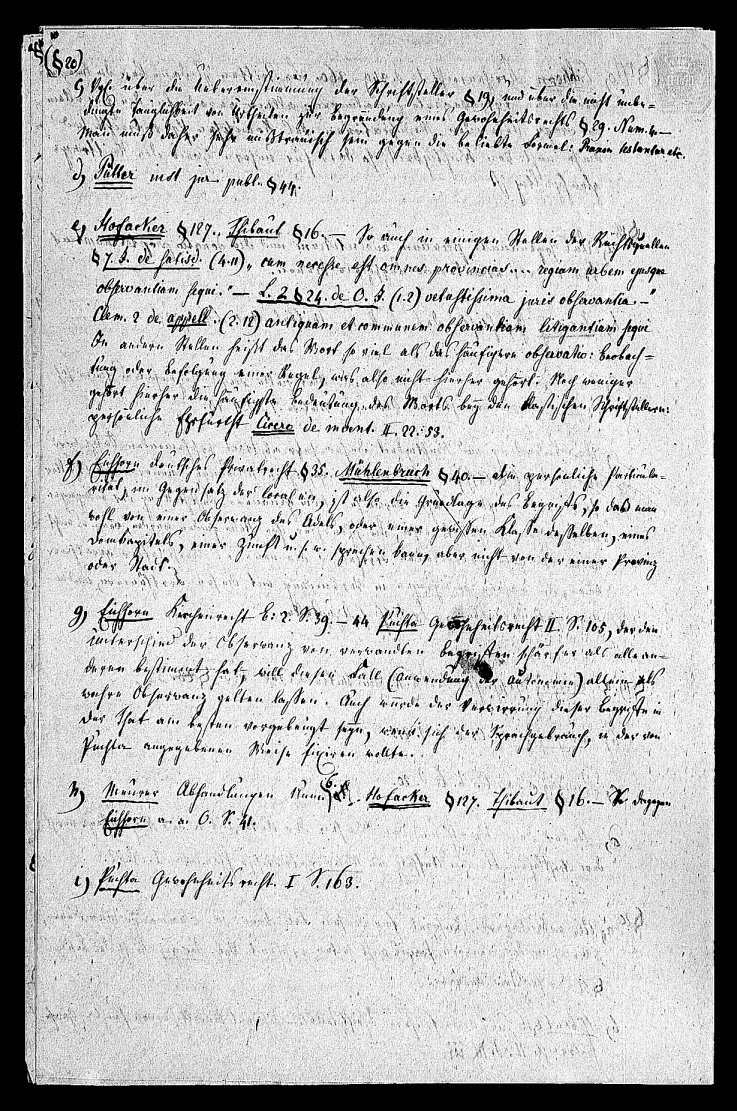 (§ 20)
c) Vgl. über die Uebereinstimmung der Schriftsteller § 19, und über die nicht unbe-
dingte Tauglichkeit von Urtheilen zur Begründung eines Gewohnheitsrechts § 29. Num. 4.—
Man muß daher sehr mißtrauisch sein gegen die beliebte Formel:
d) Pütter inst jur publ. § 44.
e) Hofacker § 127., Thibaut § 16.— So auch in einigen Stellen der Rechtsquellen
§ 7. J. de satisd. (4.11) „cum necesse est omnes provincias... regiam urbem ejusque
observantiam sequi."— L. 2 § 24. de O. J. (1.2) vetustissima juris observantia.—"
Clem. 2 de appell. (2.12) antiquam et communem observantiam litigantium sequi
In andern Stellen heißt das Wort so viel als das häufigere observatio: Beobach-
tung oder Befolgung einer Regel, was also nicht hierher gehört. Noch weniger
gehört hierher die häufigste Bedeutung des Worts bey den klassischen Schriftstellern:
persönliche Ehrfurcht Cicero de invent. II. 22. 53.
f) Eichhorn deutsches Privatrecht § 35. Mühlenbruch § 40.— Die persönliche Particula-
rität, im Gegensatz der localen, ist also die Grundlage des Begriffs, so daß man
wohl von einer Observanz des Adels, oder einer gewissen Klasse desselben, eines
Domkapitels, einer Zunft u. s. w. sprechen kann, aber nicht von der einer Provinz
oder Stadt.
g) Eichhorn Kirchenrecht B. 2. S. 39.—44 Puchta Gewohnheitsrecht II. S. 105, der den
Unterschied der Observanz von verwandten Begriffen schärfer als alle an-
deren bestimmt hat, will diesen Fall (Anwendung der Autonomie) allein als
wahre Observanz gelten lassen. Auch würde der Verwirrung dieser Begriffe in
der That am besten vorgebeugt seyn, wenn sich der Sprachgebrauch, in der von
Puchta angegebenen Weise fixiren wollte.
h) Meurer Abhandlungen Num. 6. Hofacker § 127. Thibaut § 16.— S. dagegen
Eichhorn a. a. O. S. 41.
i) Puchta Gewohnheitsrecht. I S. 163.